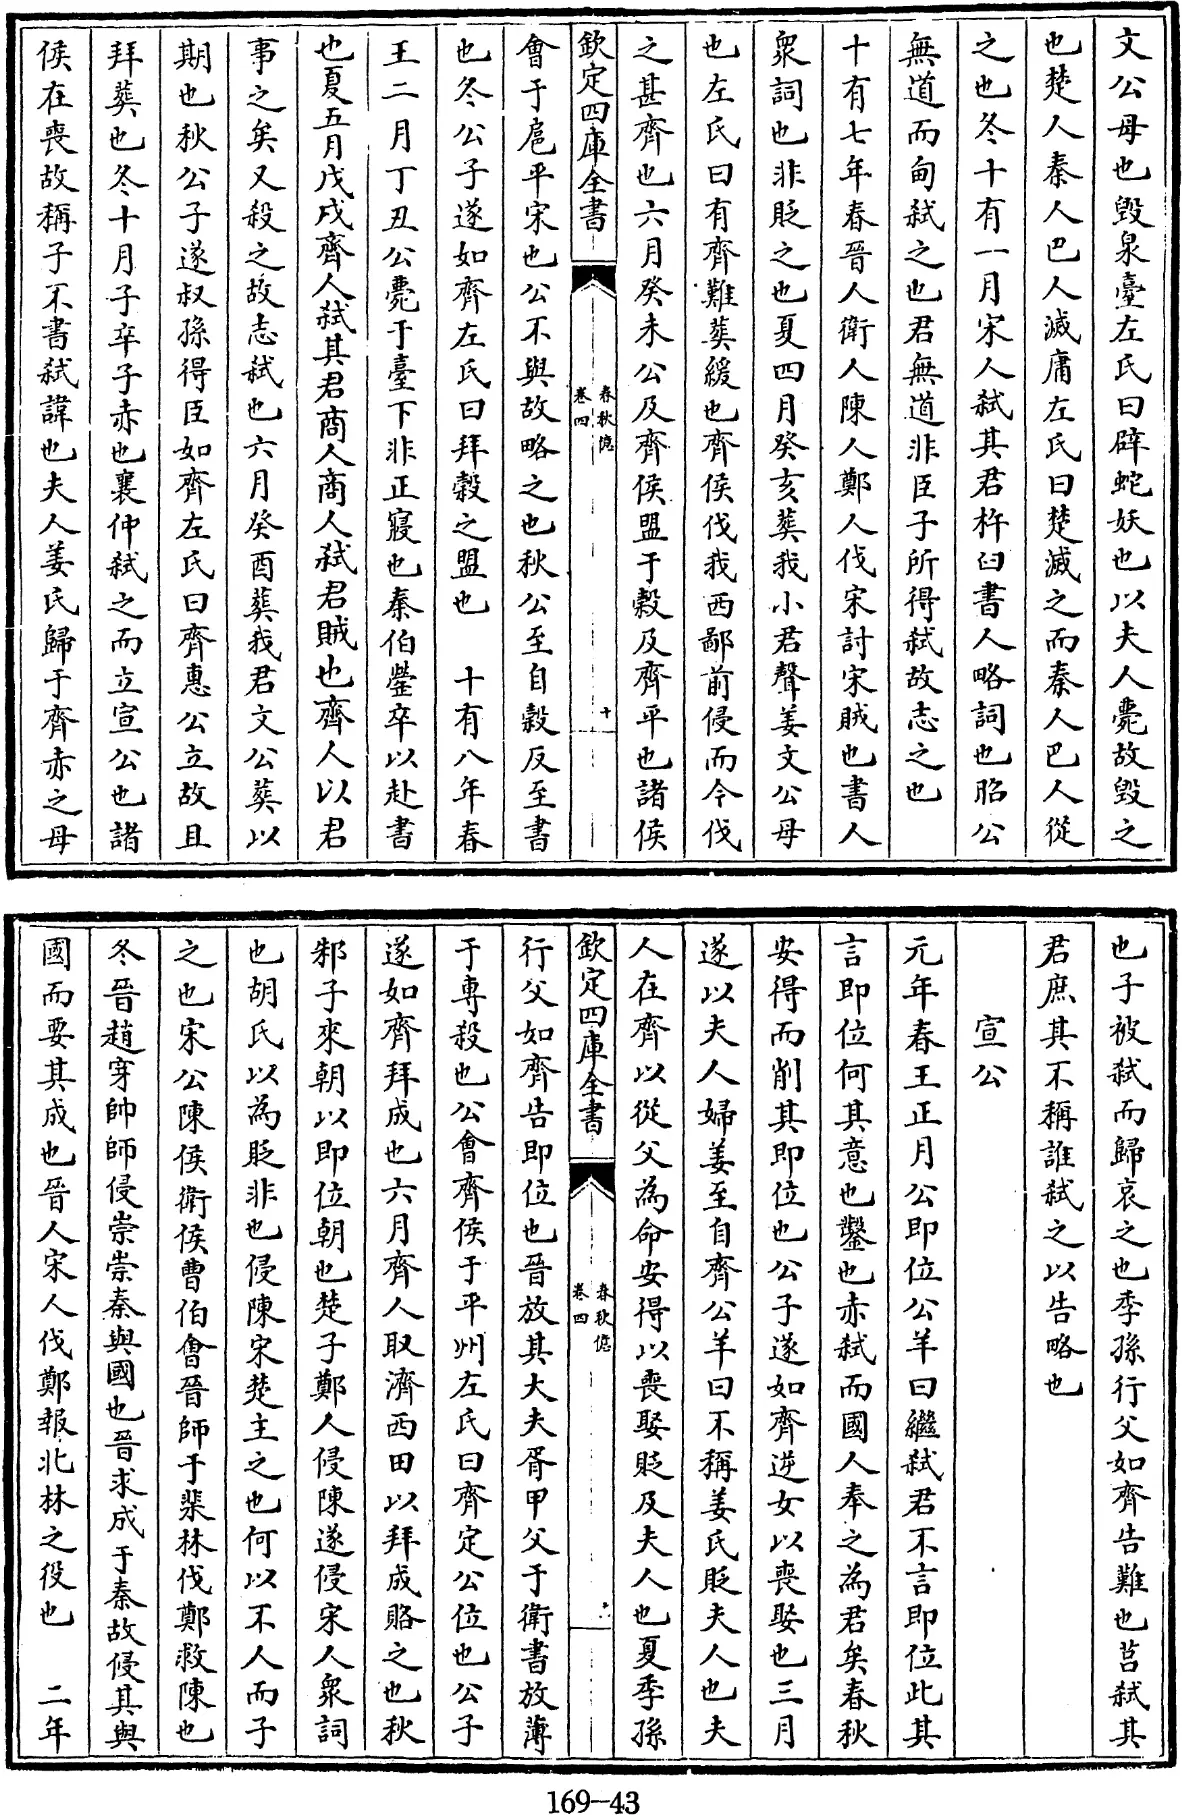 文公母也毀泉臺左氏曰辟蛇妖也以夫人薨故毀之
也楚人秦人巴人滅庸左氏曰楚滅之而秦人巴人從
之也冬十有一月宋人弑其君杵臼書人略詞也昭公
無道而甸弑之也君無道非臣子所得弑故志之也
十有七年春晉人衛人陳人鄭人伐宋討宋賊也書人
衆詞也非貶之也夏四月癸亥葬我小君聲姜文公母
也左氏曰有齊難葬緩也齊侯伐我西鄙前侵而今伐
之甚齊也六月癸未公及齊侯盟于穀及齊平也諸侯
欽定四庫全書
春秋億
卷四
十
會于扈平宋也公不與故略之也秋公至自穀反至書
也冬公子遂如齊左氏曰拜穀之盟也 十有八年春
王二月丁丑公薨于臺下非正寢也秦伯罃卒以赴書
也夏五月戊戌齊人弑其君商人商人弑君賊也齊人以君
事之矣又殺之故志弑也六月癸酉葬我君文公葬以
期也秋公子遂叔孫得臣如齊左氏曰齊惠公立故且
拜葬也冬十月子卒子赤也襄仲弑之而立宣公也諸
侯在喪故稱子不書弑諱也夫人姜氏歸于齊赤之母
也子被弑而歸哀之也季孫行父如齊告難也莒弑其
君庶其不稱誰弑之以告略也
宣公
元年春王正月公即位公羊曰繼弑君不言即位此其
言即位何其意也鑿也赤弑而國人奉之為君矣春秋
安得而削其即位也公子遂如齊逆女以喪娶也三月
遂以夫人婦姜至自齊公羊曰不稱姜氏貶夫人也夫
人在齊以從父為命安得以喪娶貶及夫人也夏季孫
欽定四庫全書
春秋億
卷四
十一
行父如齊告即位也晉放其大夫胥甲父于衛書放薄
于專殺也公會齊侯于平州左氏曰齊定公位也公子
遂如齊拜成也六月齊人取濟西田以拜成賂之也秋
邾子來朝以即位朝也楚子鄭人侵陳遂侵宋人衆詞
也胡氏以為貶非也侵陳宋楚主之也何以不人而子
之也宋公陳侯衛侯曹伯會晉師于棐林伐鄭救陳也
冬晉趙穿帥師侵崇崇秦與國也晉求成于秦故侵其與
國而要其成也晉人宋人伐鄭報北林之役也 二年
169-43